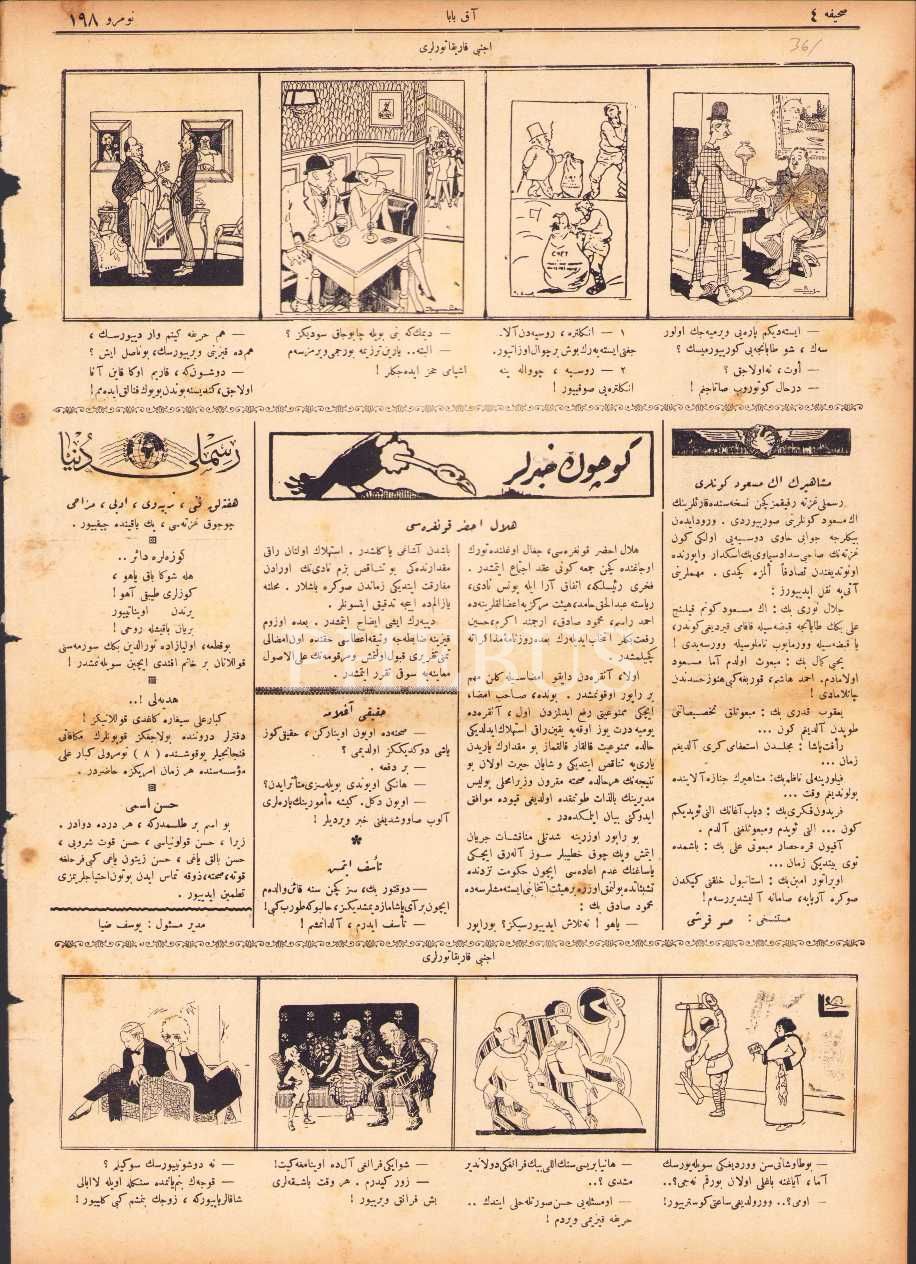 صحیفه ٤
آق بابا
نومرو ١٩٨
36/
اجنبی قاریقاتورلری
— ایسته‌دیكم پاره‌یی ویرمیه‌جك اولور
سه‌ك ، شو طابانجه‌یی كوریورمیسك ؟
— أوت ، نه‌اولاجق ؟
— درحال كوتوروب صاتاجغم !
١ — انكلتره ، روسیه‌دن آلا.
جغنی ایسته‌یه‌رك بوش برچوال اوزاتیور.
٢ — روسیه ، چوواله ینه
انكلتره‌یی صوقیور !
— دیمك‌كه بنی بویله چابوجاق سودیكز ؟
— البته.. یارین ترزینه بورجمی ویرمزسه‌م
اشیامی حجز ایده‌جكلر !
— هم حریفه كینم وار دیبورسك ،
هم‌ده قیزینی ویریبورسك ، بوناصل ایش ؟
— دوشون‌كه ، قاریم اوكا قاین آنا
اولاجق، كندیسنه بوندن بویوك فنالق ایده‌مم !
مشاهیرك اك مسعود كونلری
رسملی غزته رفیقمز كچن نسخه‌سنده قارئلرینك
اك مسعود كونلرینی صوریبوردی . ورود ایدن
بیكلرجه جوابی حاوی دوسیه‌یی اولكی كون
غزته‌نك صاحبی سداد سیاوی بك اسكدار واپورنده
اونوتدیغندن تصادفاً المزه كچدی . مهملرینی
آتی‌یه نقل ایدیبورز :
جلال نوری بك : اك مسعود كونم قیلینج
علی بكك طابانجه قبضه‌سیله قافامی قیردیغی كوندر،
یا قبضه‌سیله وورمایوب ناملوسیله وورسه‌یدی !
یحیی كمال بك : مبعوث اولدم اما مسعود
اولامادم. احمد هاشم، قوربغه كبی هنوز حسددن
چاتلامادی !
یعقوب قدری بك : مبعوثلق تخصیصاتنی
طویدن آلدیغم كون ...
رأفت پاشا : مجلسدن استعفای كری آلدیغم
زمان ...
فیلورینه‌لی ناظم بك: مشاهیرك جنازه آلاینده
بولوندیغم وقت ...
فریدون فكری بك : دیاب آغانك النی ئوپدیكم
كون ... النی ئوپدم ومبعوثلغنی آلدم .
آفیون قره‌حصار مبعوثی علی بك : باشمده
توی بیتدیكی زمان ...
اوپراتور امین بك : استانبول خلقنی كیكدن
صوكره آزیابه، صامانه آلیشدیررسه‌م !
مستنسخی : صو قرشی
كوچوك خبرلر
هلال احمر قونغره‌سی
هلال احضر قونغره‌سی، جفال اوغلنده تورك
اوجاغنده كچن جمعه كونی عقد اجتماع ایتمشدر .
فخری رئیسلكه، اتفاق آرا ایله یونس نادی،
ریاسته عبدالحق حامد، هیئت مركزیه اعضالقلرینه‌ده
احمد راسم، محمود صادق، ارجمند اكرم، حسین
كچیلمشدر .
اولا، آنقره‌دن دایقو امضاسیله كلن مهم
بر راپور اوقونمشدر . بونده، صاحب امضا،
ایچكی ممنوعیتی رفع ایدلمزدن اول، آنقره‌ده
یومیه درت یوز اوقه‌یه یقین راقی استهلاك ایدلدیكی
حالده ممنوعیت قالقار قالقماز بو مقدارك یاریدن
یاری‌یه تناقص ایتدیكنی و شایان حیرت اولان بو
نتیجه‌نك هرحالده صحته مقرون وزیرامحلی پولیس
مدیرینك بالذات طوتمقده اولدیغی قیوده موافق
ایدوكنی بیان ایتمكده‌در .
بو راپور اوزرینه شدتلی مناقشات جریان
ایتمش وبك چوق خطیبلر سوز آله‌رق ایچكی
یاساغنك عدم اعاده‌سی ایچون حكومت نزدنده
تشبثاتده بولنمق اوزره برهیئت انتخابنی ایسته‌مشلرسه‌ده
محمود صادق بك :
— یاهو ! نه‌تلاش ایدیبورسیكز؟ بوراپور
باشدن آشاغی یاكلشدر . استهلاك اولنان راقی
مقدارنده‌كی بو تناقص بزم نادی‌نك اورادن
مفارقت ایتدیكی زماندن صوكره باشلار . محلنه
یازالم‌ده ایجه تدقیق ایتسونلر .
دییه‌رك ایشی ایضاح ایتمشدر . بعده اوزوم
معاینه‌یه سوقی تقرر ایتمشدر .
حقیقی آغلامه
— صحنه‌ده اویون اوینارکن ، حقیقی كوز
یاشی دوكدیككز اولدیمی ؟
— بر دفعه .
— هانكی اویوندی بویله سزی متأثر ایدن؟
— اویون دكل. كیشه مأمورینك پاره‌لری
آلوب صاووشدیغنی خبر ویردیلر !
*
تأسف ایتمش
— دوقتور بك، سز بكن سنه قائن‌والده‌م
ایچون برآی یاشاماز دیمشدیكز، حالبوكه طورب كبی!
— تأسف ایدرم ، آلدانمشم !
رسملی دنیا
هفته‌لق فنی ، تربیه‌وی ، ادبی ، مزاحی
چوجوق غزته‌سی ، پك یاقینده چیقیبور .
كوزه‌لره دائر ..
هله شوكا باق یاهو ،
كوزلری طبق آهو !
یرندن اویناتیبور
بریان باقیشله روحی !
بوقطعه، اولیازاده نورالدین بكك سورمه‌سنی
قوللانان بر خانم افندی ایچین سویله‌نمشدر !
هدیه‌لی !..
كبارعلی سیغاره كاغدی قوللانیكز !
دفترلر دروننده بولاجغكز قوپونلرك مكافاتی
فنجانجیلر یوقوشنده ( ٨ ) نومرولی كبار علی
مؤسسه‌سنده هر زمان امریكزه حاضردر .
حسن اسمی
بو اسم بر طلسمدركه ، هر درده دوادر .
زیرا ، حسن قولونیاسی ، حسن قوت شروبی ،
حسن بالق یاغی ، حسن زیتون یاغی كبی فرحلغه
قوته، صحته، ذوقه تماس ایدن بوتون احتیاجلریمزی
تطمین ایدیبور .
مدیر مسئول : یوسف ضیا
اجنبی قاریقاتورلری
— بوطاوشانی سن ووردیغكی سویله‌یورسك
آما ، آیاغنه باغلی اولان بورقم نه‌جی؟..
— اومی؟.. وورولدیغی ساعتی كوستریبور!
— هانیا بریسی سنك اللی بیك فرانغكی دولاندیر
مشدی ؟..
— اومسئله‌یی حسن صورتله حلی ایتدك ..
حریفه قیزیمی ویردم !
— شو ایكی فرانغی آل‌ده اوینامغه كیت!
— زور كیدرم . هر وقت باشقه‌لری
بش فرانق ویریبور !
— نه دوشونیبورسك سوكیلم ؟
— قوجه‌ك بنم‌یانمده سنكله اویله لاابالی
شاقالر یاپیبوركه ، زوجك بنمشم كبی كلیبور !